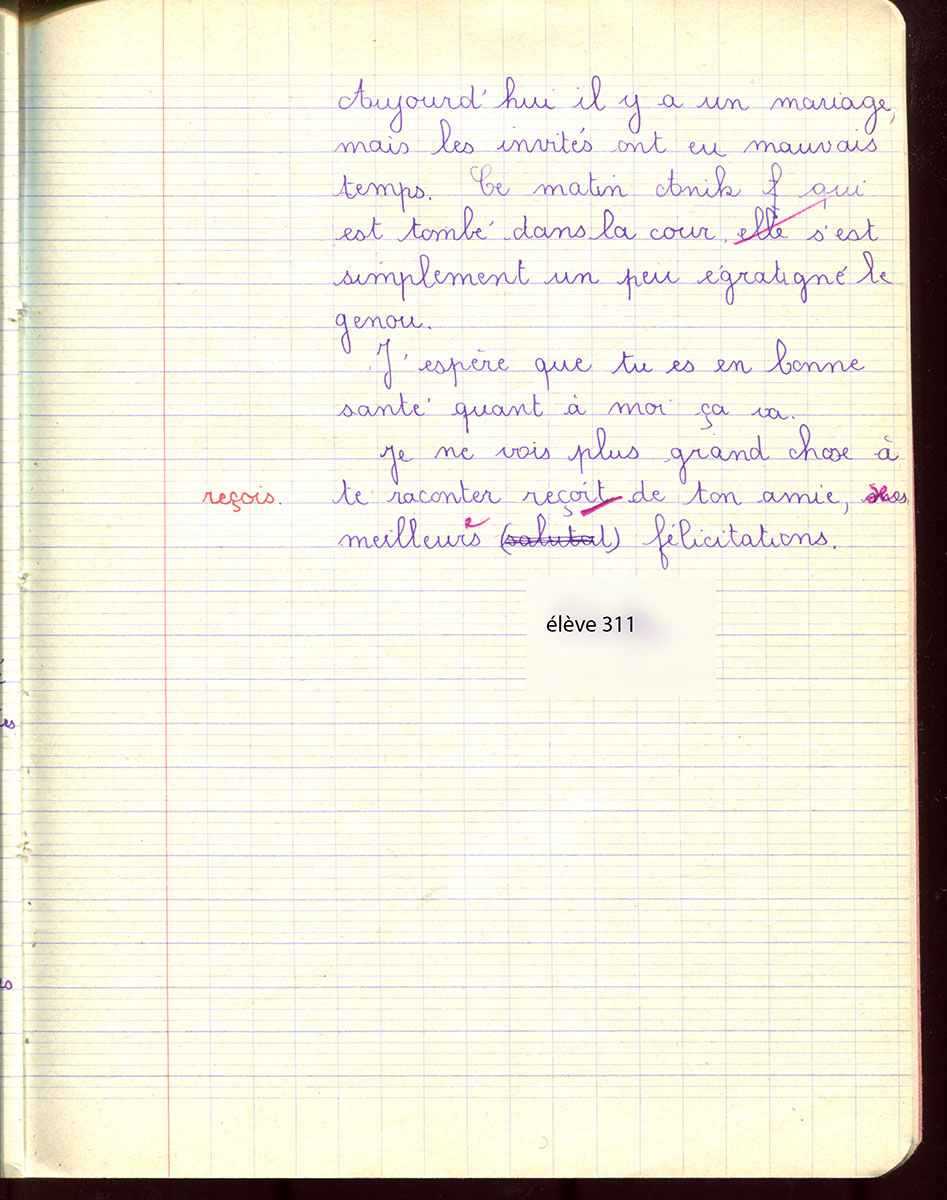 Aujourd'hui il y a un mariage,
mais les invités ont eu mauvais
temps. Ce matin Anik f qui
est tombé dans la cour, elle s'est
simplement un peu égratigné le
genou.
J'espère que tu es en bonne
santé quant à moi ça va.
Je ne vois plus grand chose à
reçois. te raconter reçoit de ton amie, ses
meilleurs e (salutat) félicitations.
élève 311
es